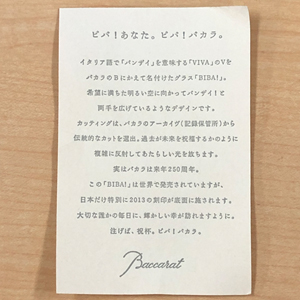 ビバ！あなた。ビバ！バカラ。
イタリア語で「バンザイ」を意味する「VIVA」のVを
バカラのBにかえて名付けたグラス「BIBA!」。
希望に満ちた明るい空に向かってバンザイ！と
両手を広げているようなデザインです。
カッティングは、バカラのアーカイヴ(記録保管所)から
伝統的なカットを選出。過去が未来を祝福するかのように
複雑に反射してあたらしい光を放ちます。
実はバカラは来年250周年。
この「BIBA!」は世界で発売されていますが、
日本だけ特別に2013の刻印が底面に施されます。
大切な誰かの毎日に、輝かしい幸が訪れますように。
注げば、祝杯。ビバ！バカラ。
Baccarat